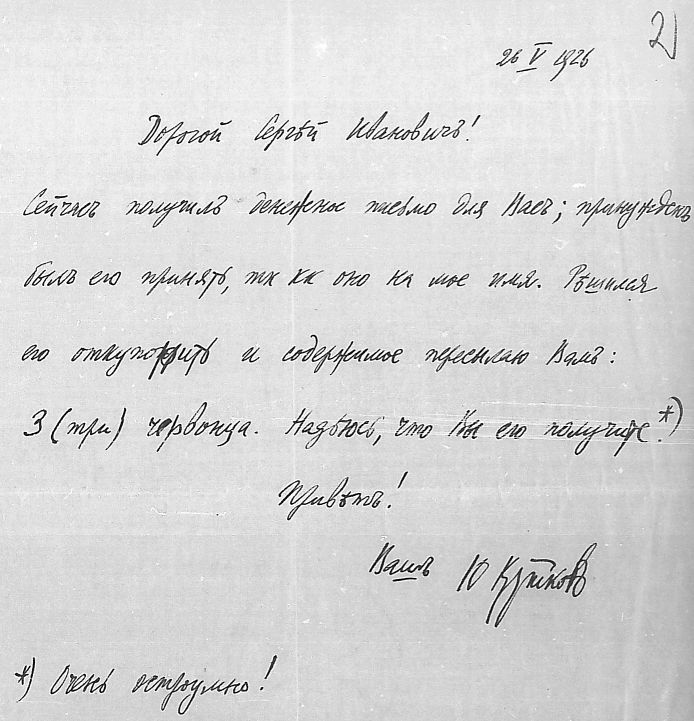 2
26 V 1926
Дорогой Сергѣй Ивановичъ!
Сейчасъ получилъ денежное письмо для Васъ; принужденъ
былъ его принять, тк кк оно на мое имя. Рѣшился
его откупорить и содержимое пересылаю Вамъ:
3 (три) червонца. Надѣюсь, что Вы его получите.*)
Привѣтъ!
Вашъ Ю Крутковъ
*) Очень остроумно!